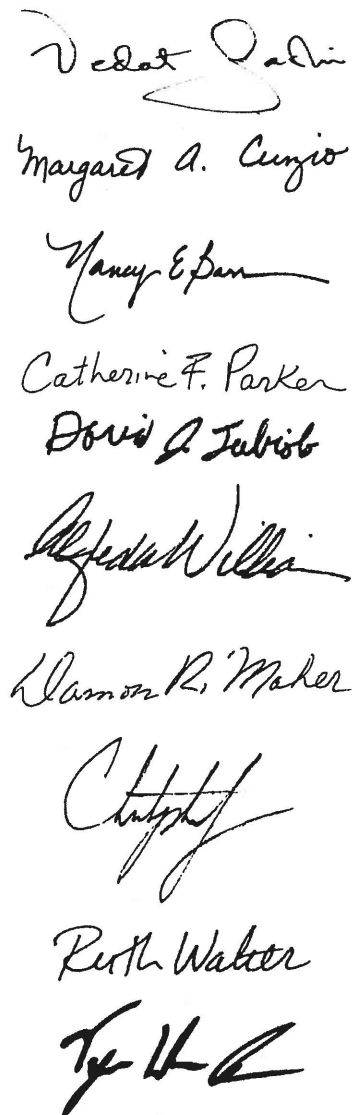 Vedat
Margaret A. Cunzio
Nancy E Barr
Catherine F. Parker
David J. Tubiolo
Alfreda Williams
Damon R. Maher
Ruth Walter